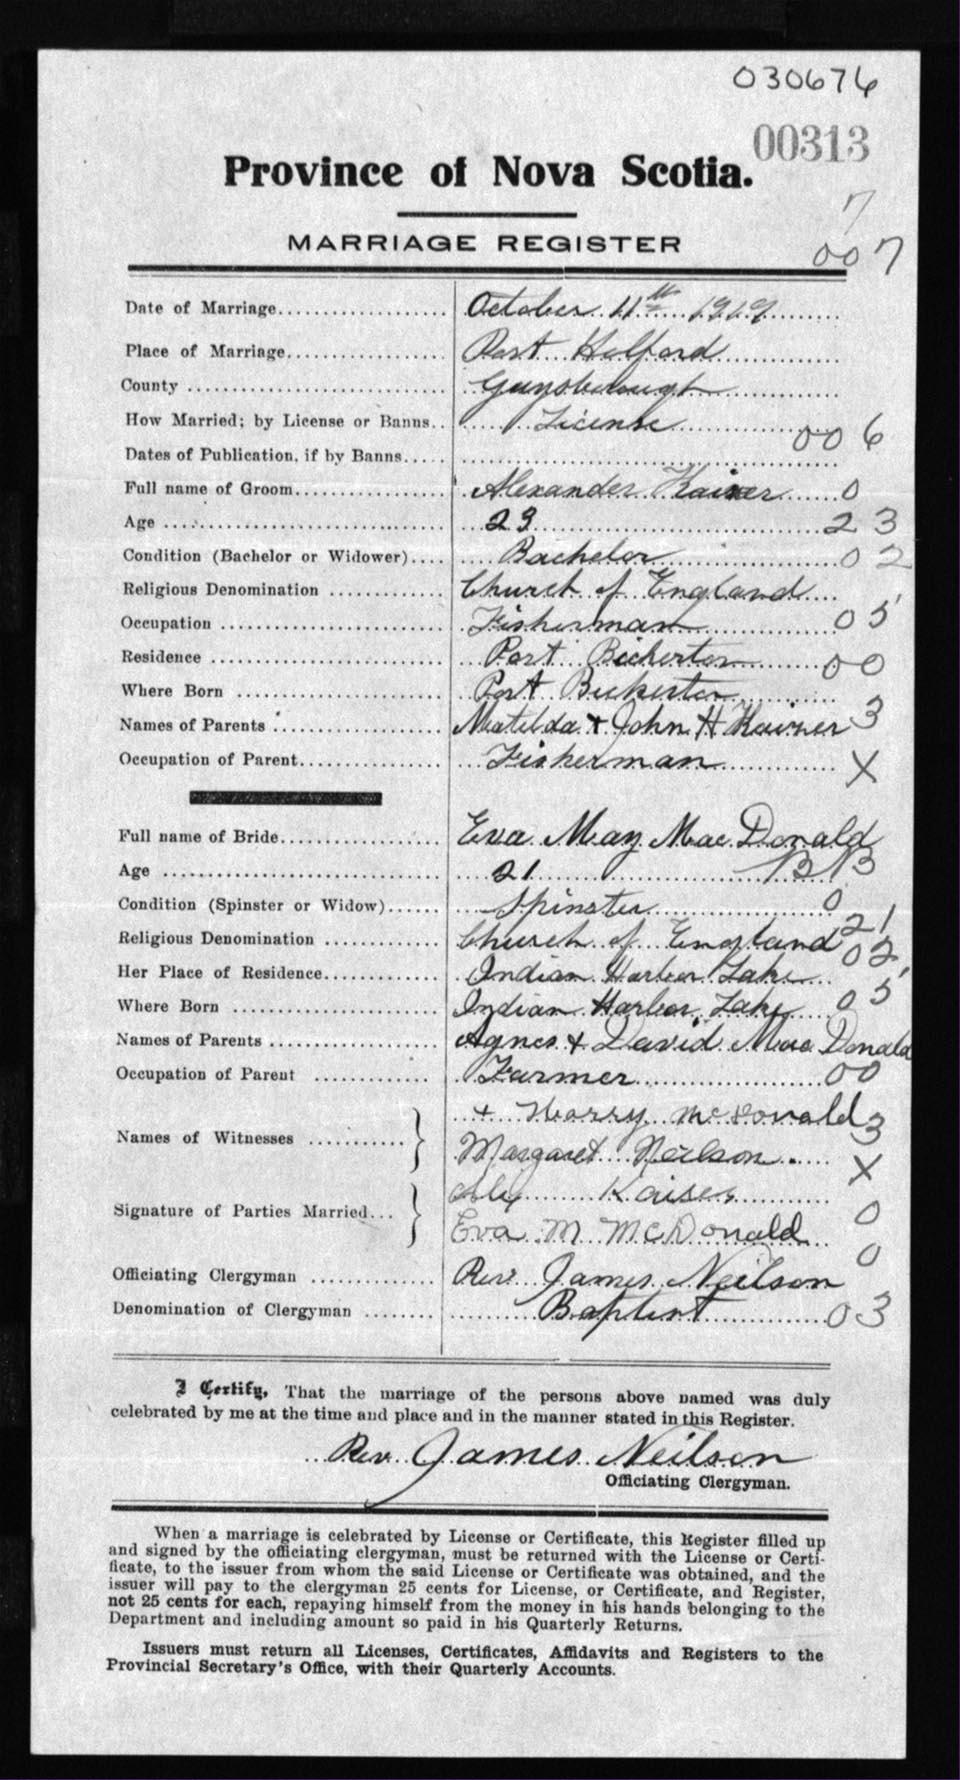 030676
00313
Province of Nova Scotia.
7
MARRIAGE REGISTER
007
Date of Marriage.................... October 11th 1919
Place of Marriage.................. Port Hilford
County .......................... Guysborough
How Married; by License or Banns.. License 006
Dates of Publication, if by Banns.....
Full name of Groom................ Alexander Kaiser 0
Age ............................. 23 23
Condition (Bachelor or Widower).... Bachelor 02
Religious Denomination ............. Church of England
Occupation ....................... Fisherman 05
Residence ........................ Port Bickerton 00
Where Born ..................... Port Bickerton
Names of Parents ................. Matilda + John H Kaizer 3
Occupation of Parent.............. Fisherman X
Full name of Bride................. Eva May Mac Donald
Age ............................. 21 B B
Condition (Spinster or Widow)...... Spinster 0
Religious Denomination ............ Church of England 21
Her Place of Residence............. Indian Harbor Lake 02
Where Born ..................... Indian Harbor Lake 05
Names of Parents ................. Agnes + David Mac Donald
Occupation of Parent ............. Farmer 00
+ Harry McDonald 3
Names of Witnesses .......... } Margaret Neilson X
Kaiser
Signature of Parties Married... } 0
Eva M McDonald
0
Officiating Clergyman .............. Rev James Neilson
Denomination of Clergyman ........ Baptist 03
I Certify, That the marriage of the persons above named was duly
celebrated by me at the time and place and in the manner stated in this Register.
Rev. James Neilson
Officiating Clergyman.
When a marriage is celebrated by License or Certificate, this Register filled up
and signed by the officiating clergyman, must be returned with the License or Certi-
ficate, to the issuer from whom the said License or Certificate was obtained, and the
issuer will pay to the clergyman 25 cents for License, or Certificate, and Register,
not 25 cents for each, repaying himself from the money in his hands belonging to the
Department and including amount so paid in his Quarterly Returns.
Issuers must return all Licenses, Certificates, Affidavits and Registers to the
Provincial Secretary's Office, with their Quarterly Accounts.